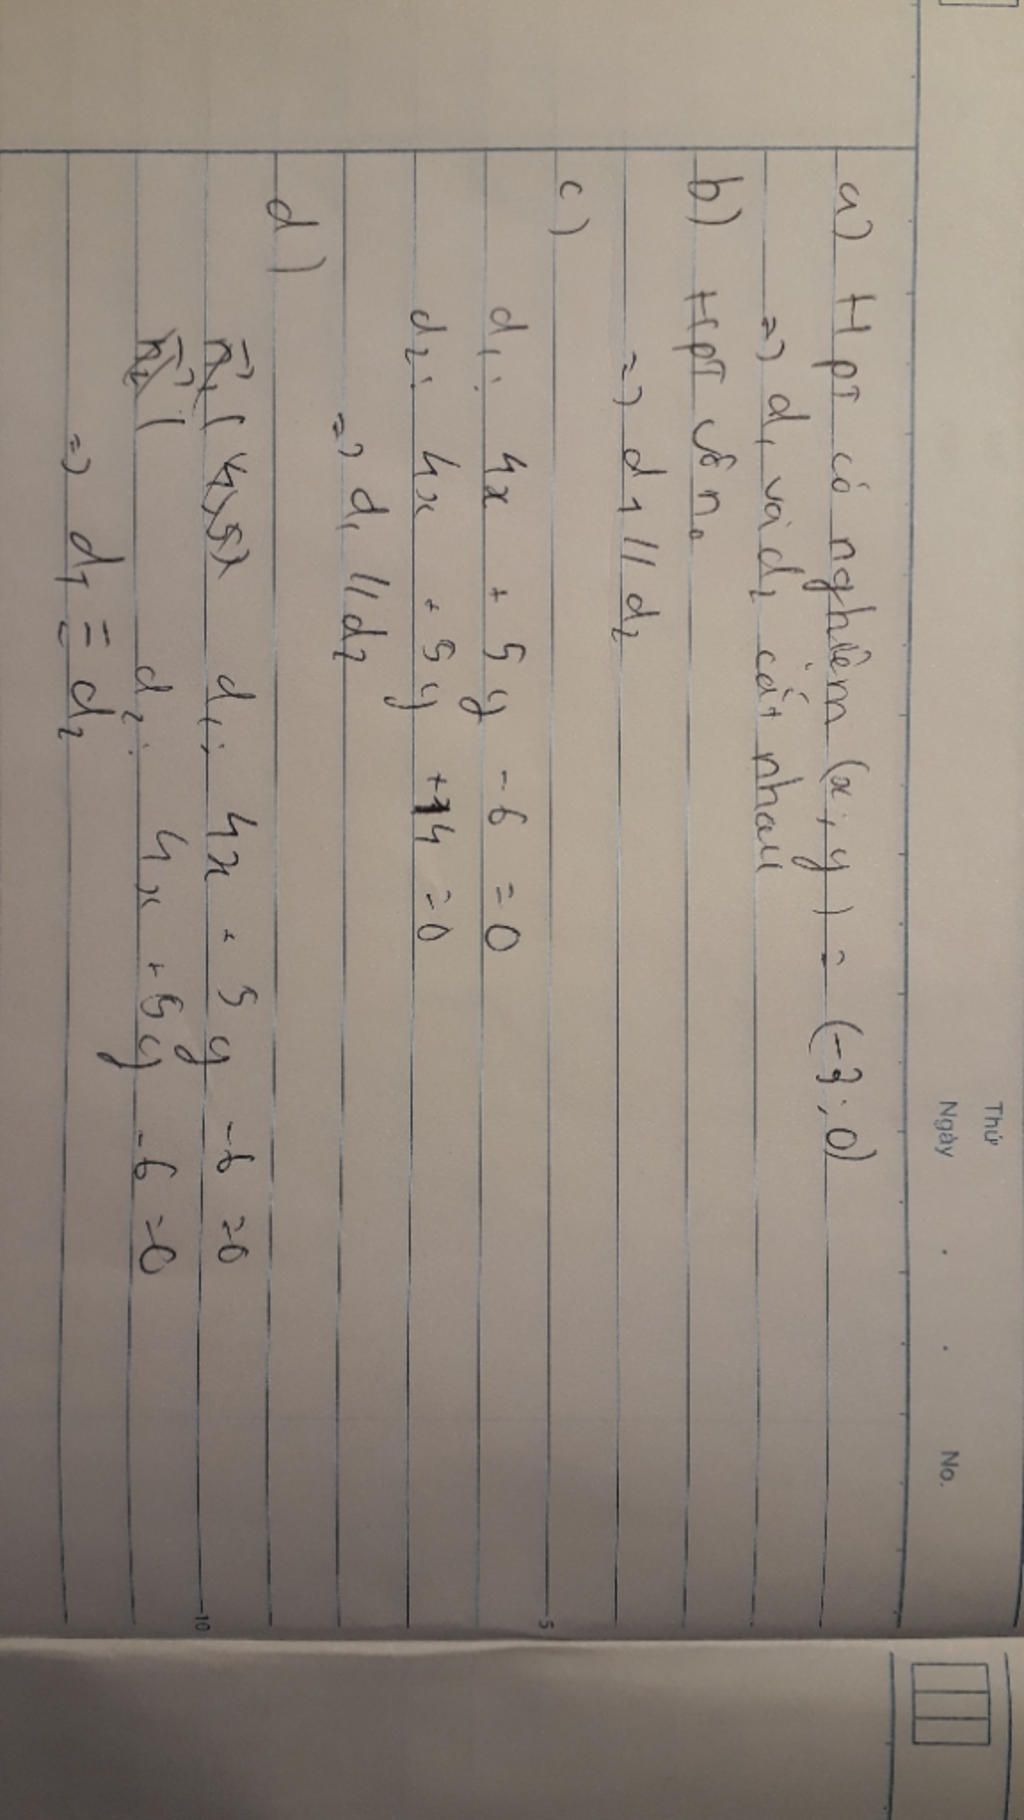 Thứ
Ngày . . No.
a) Hpt có nghiệm (x; y) = (-3; 0)
=> d₁ và d₂ cắt nhau
b) Hpt vô n₀
=> d₁ // d₂
c)
d₁: 4x + 5y - 6 = 0
5
d₂: 4x + 5y + 14 = 0
=> d₁ // d₂
d)
d₁: 4x + 5y - 6 = 0
10
d₂: 4x + 5y - 6 = 0
=> d₁ ≡ d₂